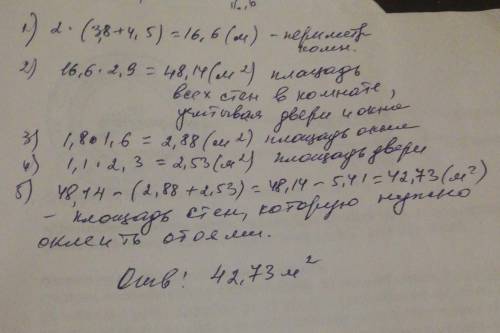 1) 2 · (3,8+4,5)=16,6(м) - периметр
комн.
2) 16,6 · 2,9 = 48,14(м²) площадь
всех стен в комнате,
учитывая двери и окна
3) 1,8·1,6 = 2,88(м²) площадь окна
4) 1,1 · 2,3 = 2,53(м²) площадь двери
5) 48,14 - (2,88+2,53)=48,14-5,41=42,73(м²)
- площадь стен, которую нужно
оклеить обоями.
Отв! 42,73 м²